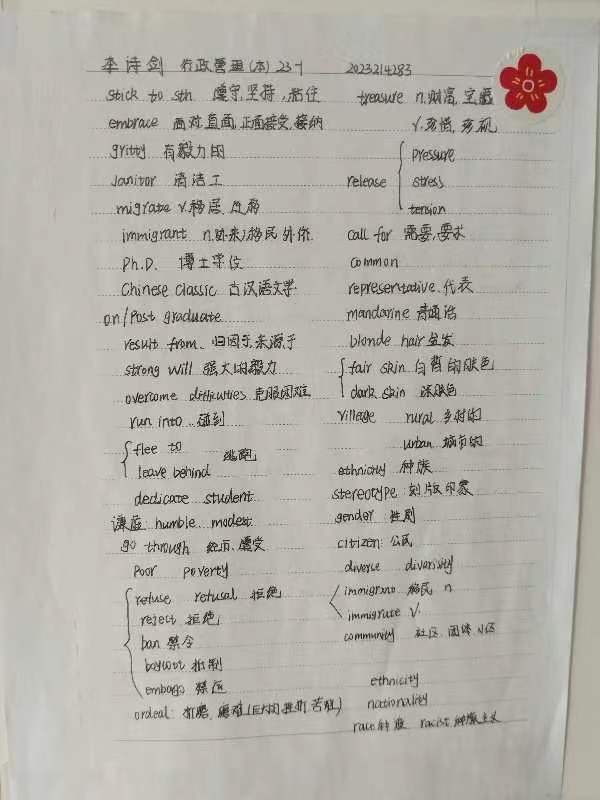 李诗剑 行政管理(本) 23-1 2023214283
stick to sth 遵守,坚持,粘住
embrace 面对,直面,正面接受,接纳
gritty 有毅力的
Janitor 清洁工
migrate v.移居
immigrant n.(外来)移民 外侨
Ph.D. 博士学位
Chinese Classic 古汉语文学
on/Post graduate
result from. 归因于,来源于
strong will 强大的毅力
overcome difficulties 克服困难
run into 碰到
flee to
leave behind 逃跑
dedicate student
谦虚 humble modest
go through 经历,遭受
Poor poverty
refuse refusal 拒绝
reject 拒绝
ban 禁令
boycott 抵制
embago 禁运
ordeal: 折磨,磨难(巨大的挫折,苦难)
treasure n.财富,宝藏
v.珍惜,珍视
release
pressure
stress
tension
call for 需要,要求
common
representative.代表
mandarine 普通话
blonde hair 金发
fair skin 白皙的肤色
dark skin 深肤色
village rural 乡村的
urban 城市的
ethnicity 种族
stereotype 刻版印象
gender 性别
citizen: 公民
diverse diversity
immigrant 移民 n
immigrate v.
community 社区 团体 小区
ethnicity
nationality
race 种族 racist 种族主义